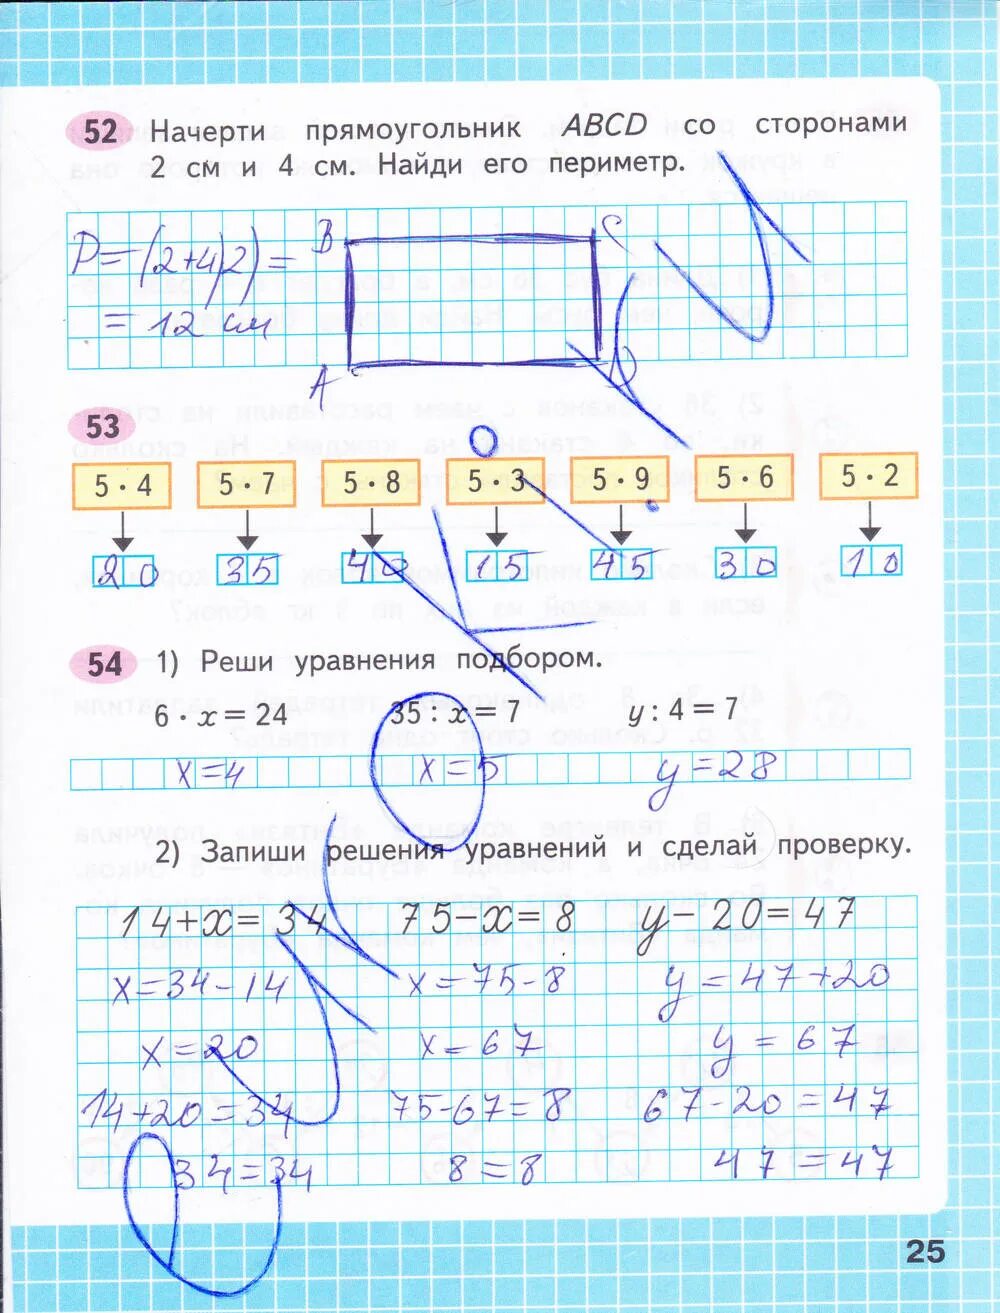 52 Начерти прямоугольник ABCD со сторонами
2 см и 4 см. Найди его периметр.
P=(2+4)2)=
= 12 см
B C
A D
53
5 · 4 5 · 7 5 · 8 5 · 3 5 · 9 5 · 6 5 · 2
20 35 40 15 45 30 10
54 1) Реши уравнения подбором.
6 · x = 24 35 : x = 7 y : 4 = 7
x=4 x=5 y=28
2) Запиши решения уравнений и сделай проверку.
14+x=34 75-x=8 y-20=47
x=34-14 x=75-8 y=47+20
x=20 x=67 y=67
14+20=34 75-67=8 67-20=47
34=34 8=8 47=47
25